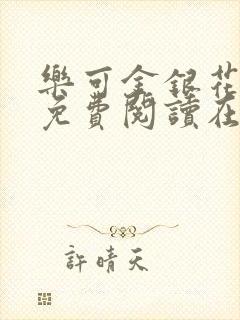 樂可金銀花
免費閱讀在
許晴天